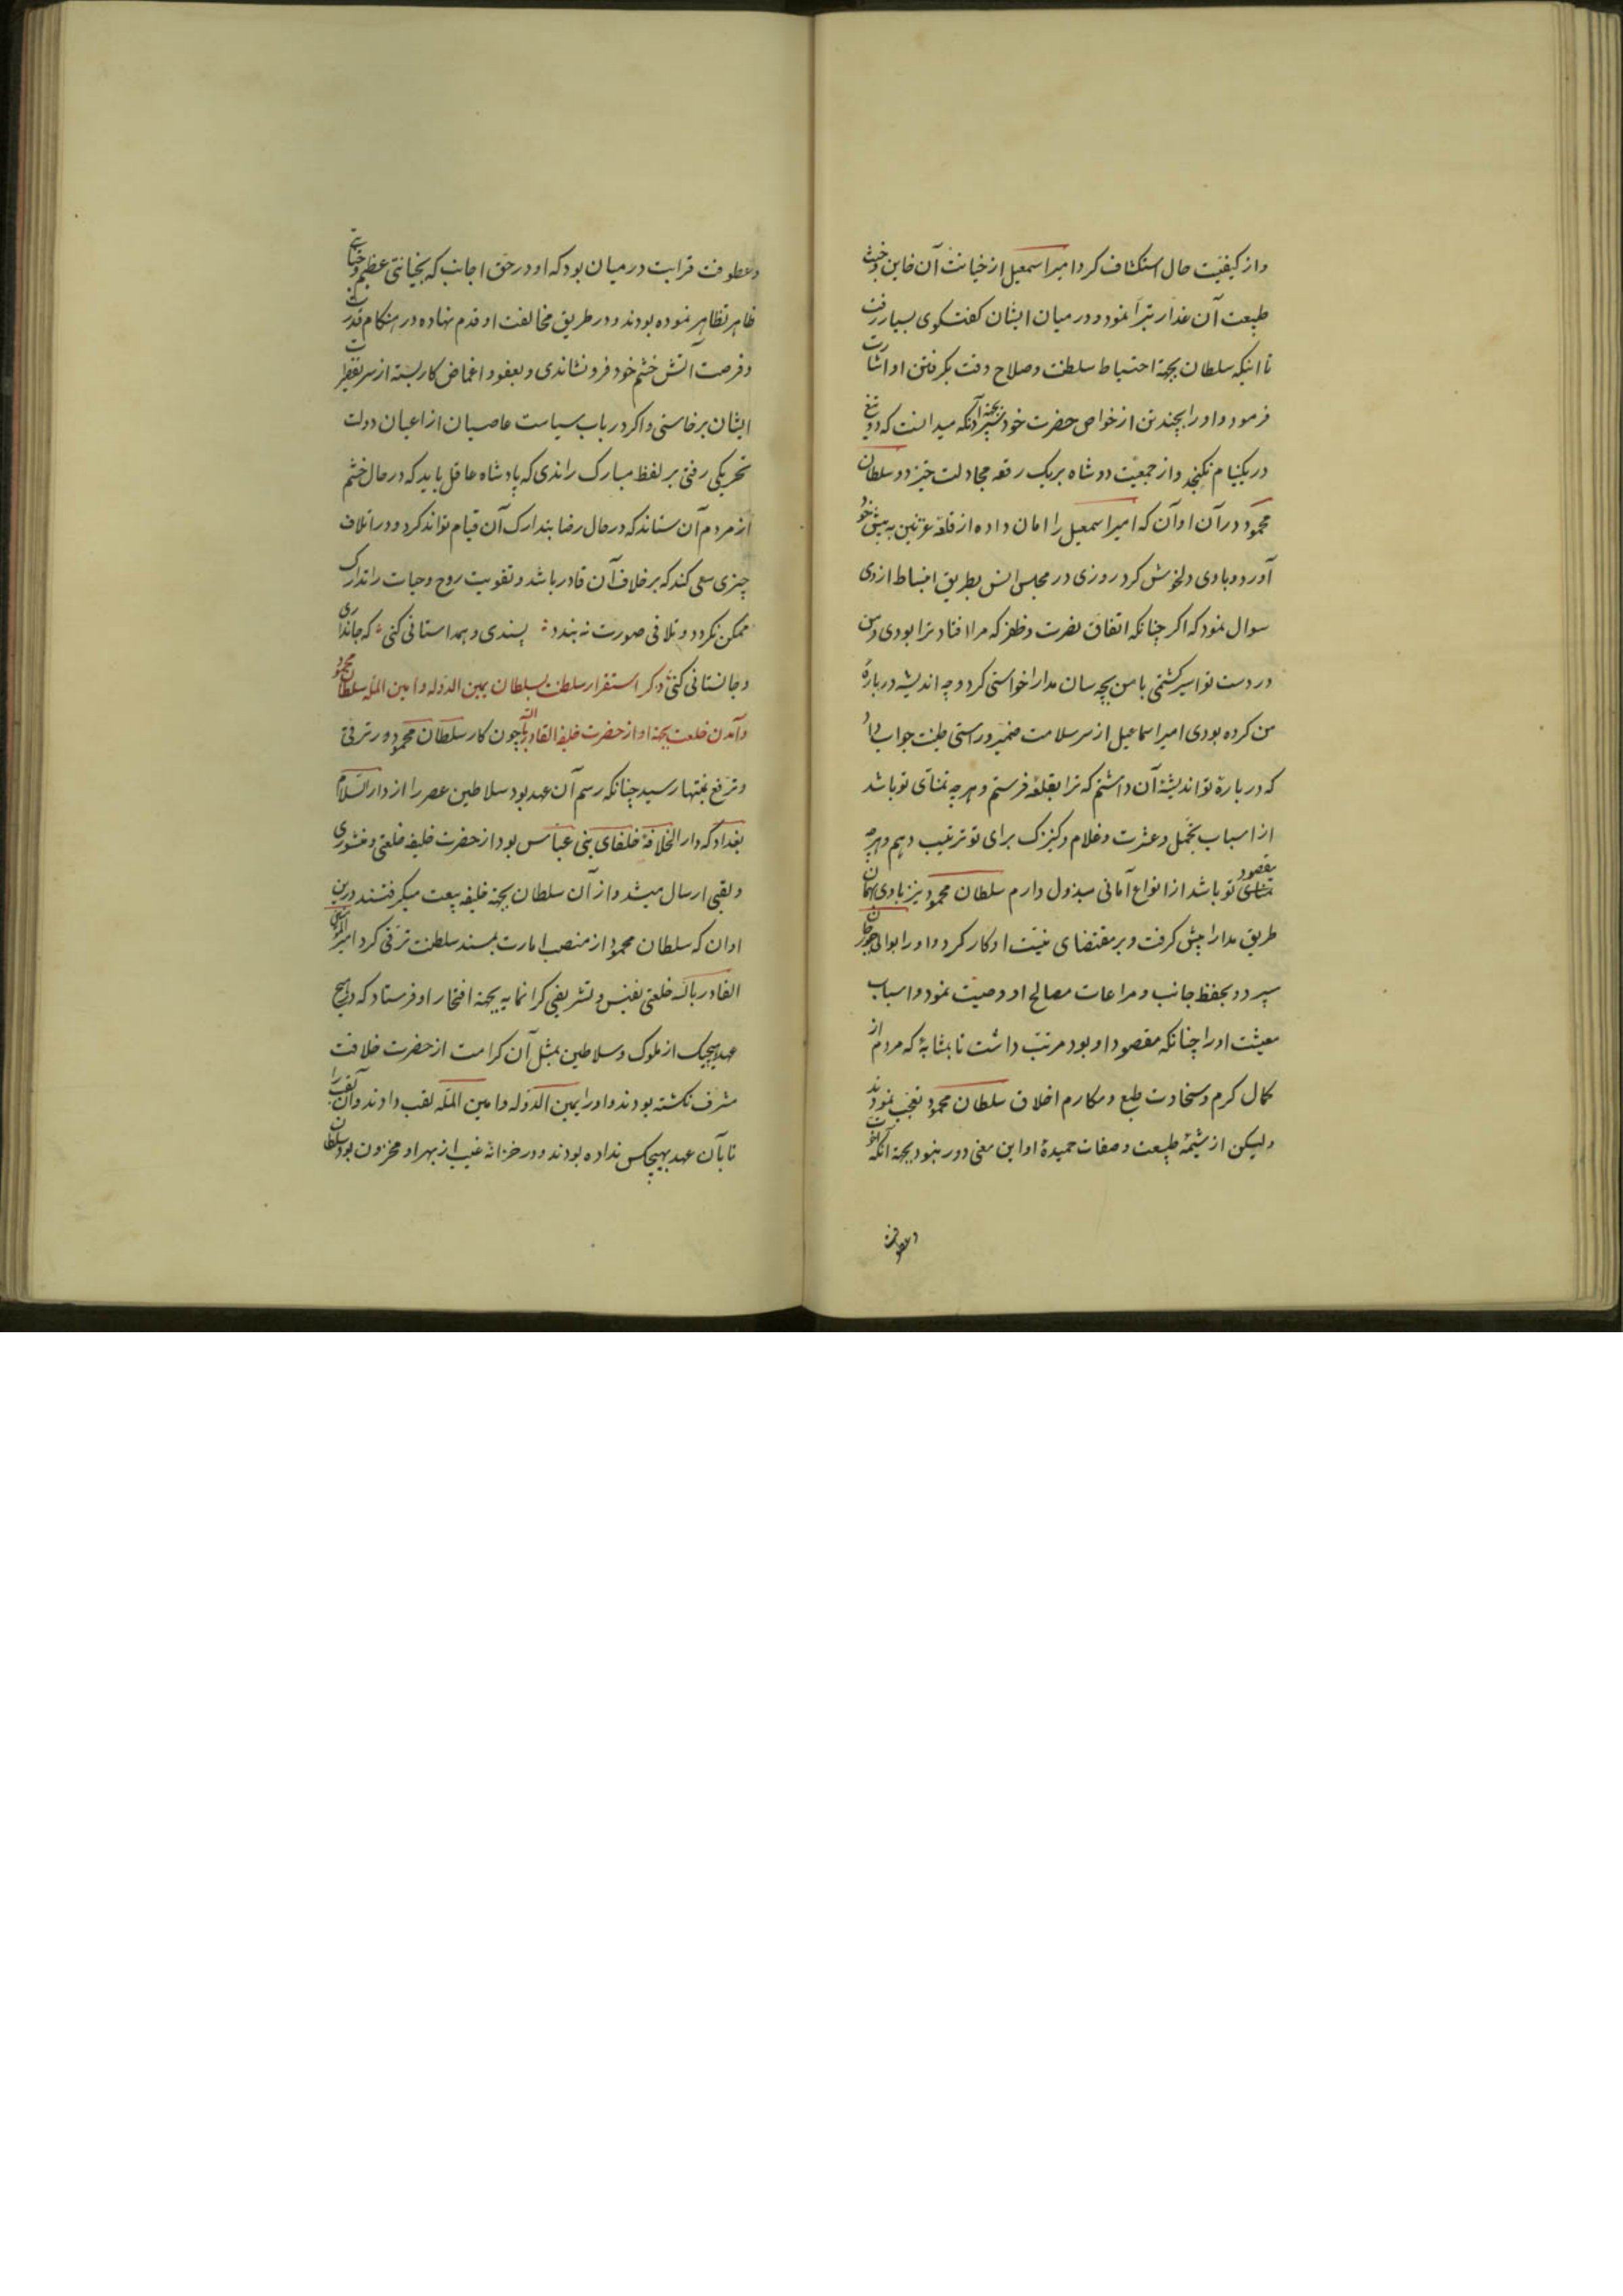 و از کیفیت حال استکشاف کرد امیر اسمعیل از خیانت آن خاین و خبث
طبیعت آن غدار تبرا نمود و در میان ایشان کفتکوی بسیار رفت
تا اینکه سلطان بجهة احتیاط سلطنت و صلاح وقت بکرفتن او اشارت
فرمود و او را بچند تن از خواص حضرت خود سپرد بجهة آنکه میدانست که دو تیغ
در یکنیام نکنجد و از جمعیت دو شاه بر یک رقعه مجادلت خیزد و سلطان
محمود در آن اوان که امیر اسمعیل را امان داده از قلعه غزنین به پیش خود
آورد و با وی دلخوش کرد روزی در مجلس انس بطریق انبساط از وی
سوال نمود که اکر چنانکه اتفاق نصرت و ظفر که مرا افتاد ترا بودی و من
در دست تو اسیر کشتمی با من بچه سان مدارا خواستی کرد و چه اندیشه در باره
من کرده بودی امیر اسماعیل از سر سلامت ضمیر و راستی طینت جواب داد
که در باره تو اندیشه آن داشتم که ترا بقلعه فرستم و هر چه تمنای تو باشد
از اسباب تجمل و عشرت و غلام و کنیزک برای تو ترتیب دهم و هر چه
مقصود تو باشد از انواع آمانی مبذول دارم سلطان محمود نیز با وی همان
طریق مدارا پیش کرفت و بر مقتضای نیت او کار کرد و او را بوالی جوزجان
سپرد و بحفظ جانب و مراعات مصالح او وصیت نمود و اسباب
معیشت او را چنانکه مقصود او بود مرتب داشت تا بمثابه که مردم از
کمال کرم و سخاوت طبع و مکارم اخلاق سلطان محمود تعجب نمودند
ولیکن از شیمه طبیعت و صفات حمیده او این معنی دور نبود بجهة آنکه اخوت
و عطوفت
و عطوفت قرابت در میان بود که او در حق اجانب که بخیانتی عظیم و جنایتی
ظاهر تظاهر نموده بودند و در طریق مخالفت او قدم نهاده در هنکام قدرت
و فرصت آتش خشم خود فرو نشاندی و بعفو و اغماض کار بسته از سر تقصیرات
ایشان برخاستی و اکر در باب سیاست عاصیان از اعیان دولت
تحریکی رفتی بر لفظ مبارک راندی که پادشاه عاقل باید که در حال خشم
از مردم آن ستاند که در حال رضا بتدارک آن قیام تواند کرد و در اتلاف
چیزی سعی کند که بر خلاف آن قادر باشد و تفویت روح و حیات را تدارک
ممکن نکردد و تلافی صورت نه بندد پسندی و همداستانی کنی که جانداری
و جانستانی کنی ذکر استقرار سلطنت بسلطان یمین الدوله و امین المله سلطان محمود
و آمدن خلعت بجهة او از حضرت خلیفه القادر بالله چون کار سلطان محمود در ترقی
و ترفع بمنتها رسید چنانکه رسم آن عهد بود سلاطین عصر را از دار السلام
بغداد که دار الخلافه خلفای بنی عباس بود از حضرت خلیفه خلعتی و منشوری
و لقبی ارسال میشد و از آن سلطان بجهة خلیفه بیعت میکرفتند درین
اوان که سلطان محمود از منصب امارت بمسند سلطنت ترقی کرد امیر المومنین
القادر بالله خلعتی نفیس و تشریفی کرانمایه بجهة افتخار او فرستاد که در هیچ
عهد هیچیک از ملوک و سلاطین بمثل آن کرامت از حضرت خلافت
مشرف نکشته بودند و او را یمین الدوله و امین المله لقب دادند و آن لقب را
تا بآن عهد بهیچکس نداده بودند و در خزانه غیب از بهر او مخزون بود سلطان